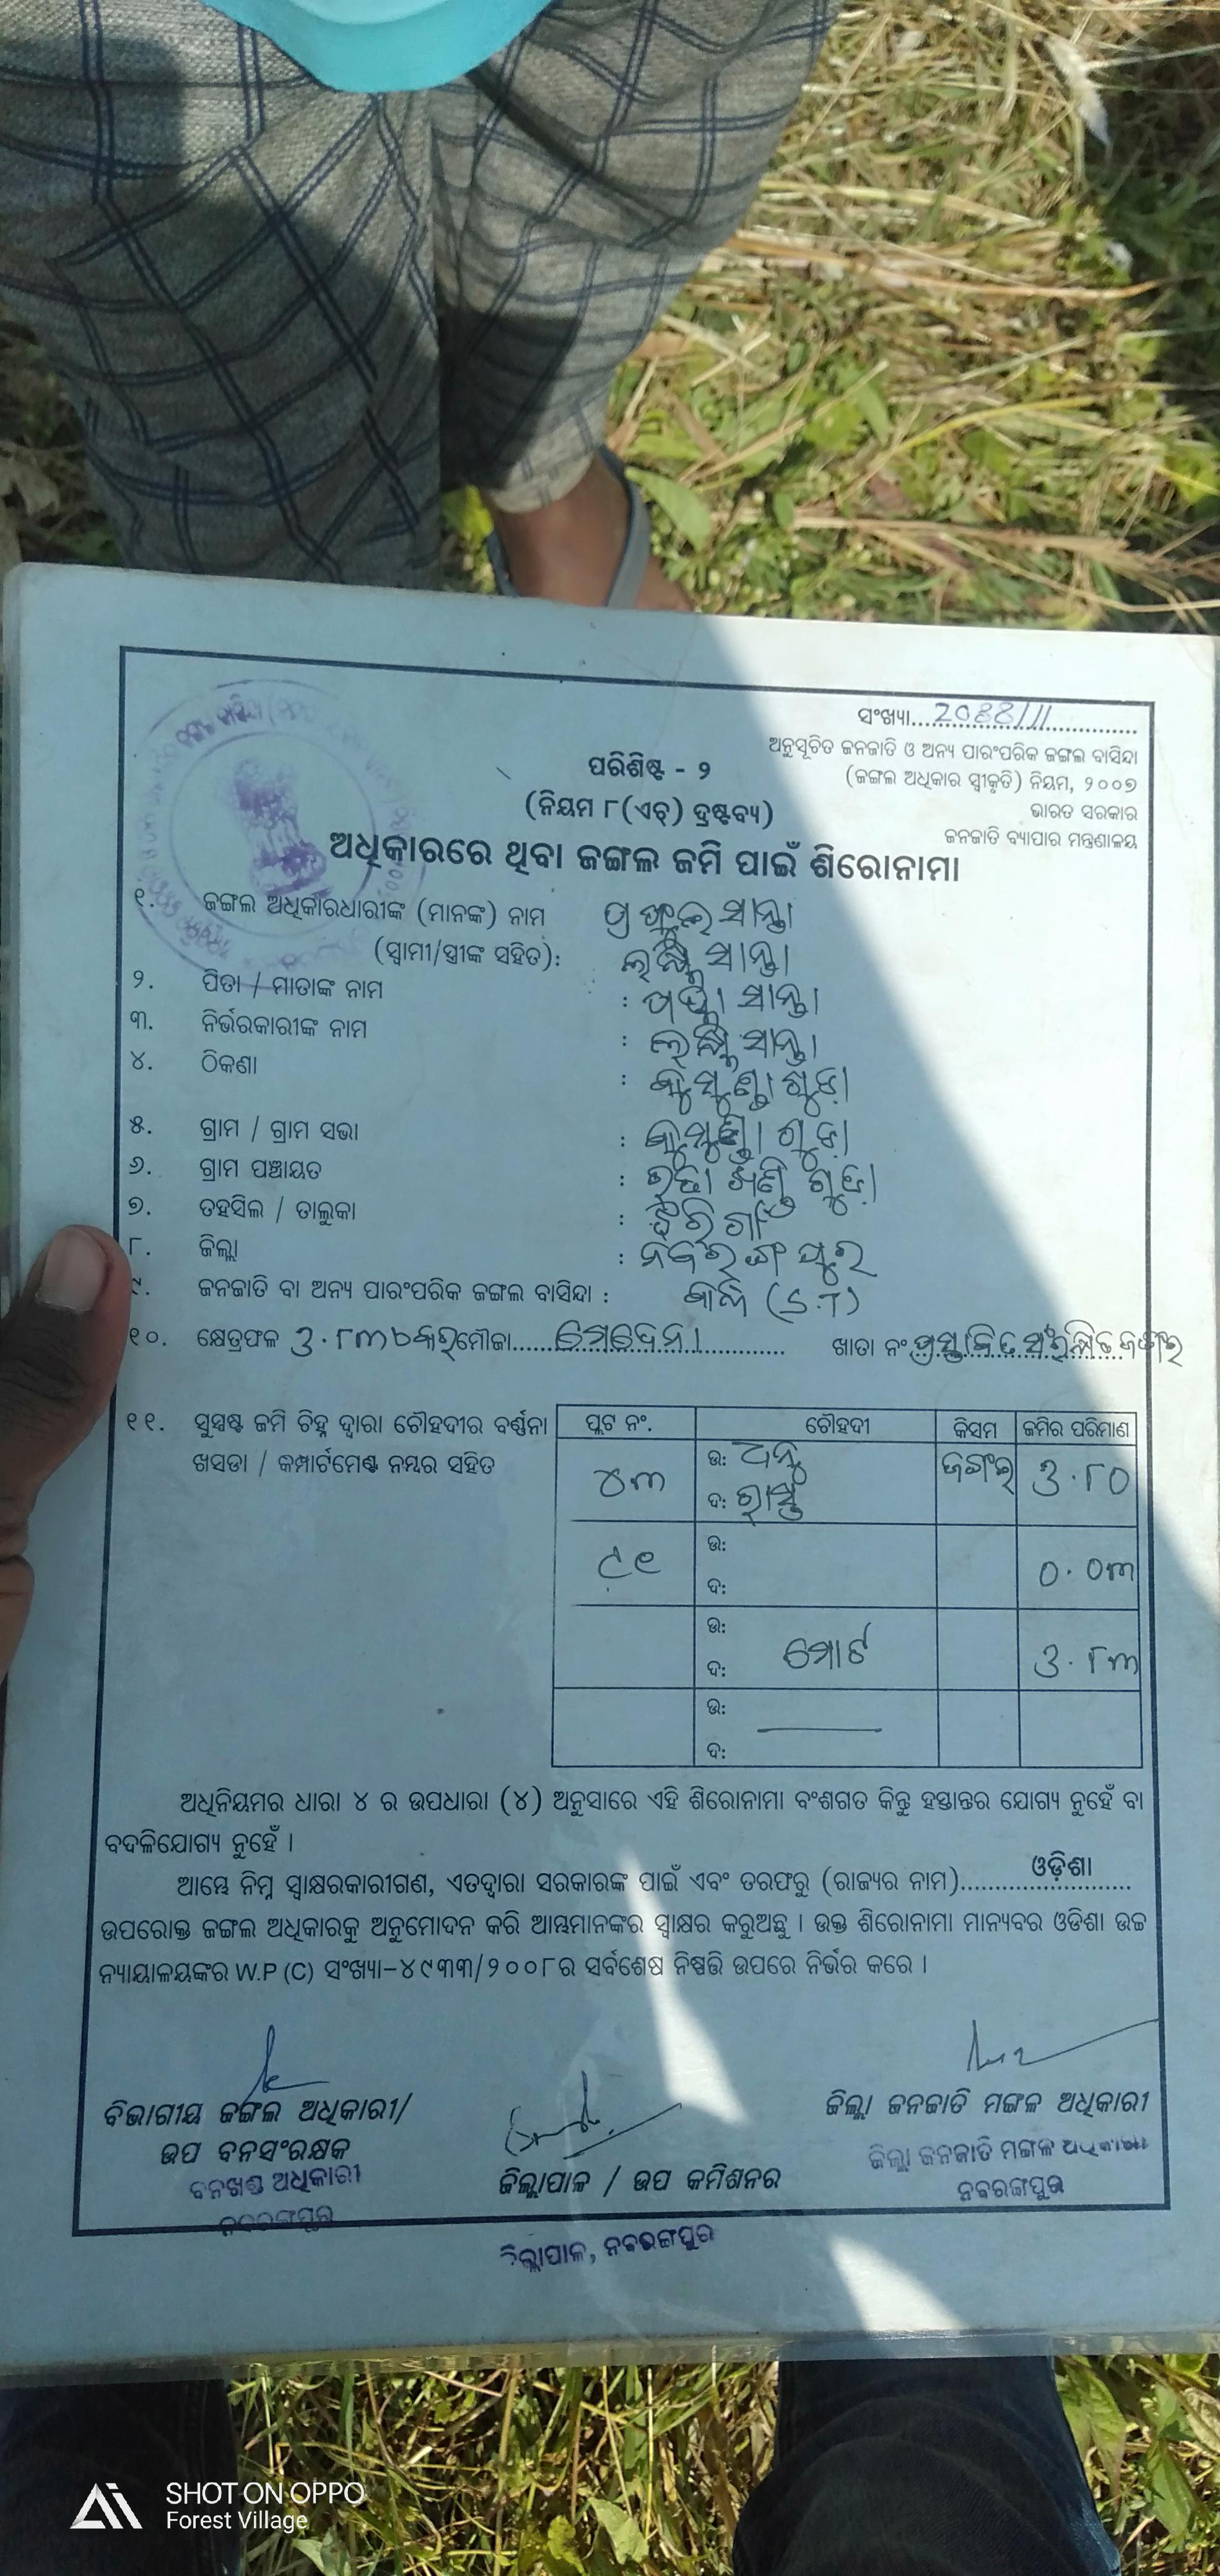 ସଂଖ୍ୟା....2088/11....
ଅନୁସୂଚିତ ଜନଜାତି ଓ ଅନ୍ୟ ପାରଂପରିକ ଜଙ୍ଗଲ ବାସିନ୍ଦା
(ଜଙ୍ଗଲ ଅଧିକାର ସ୍ୱୀକୃତି) ନିୟମ, ୨୦୦୭
ଭାରତ ସରକାର
ଜନଜାତି ବ୍ୟାପାର ମନ୍ତ୍ରଣାଳୟ
ପରିଶିଷ୍ଟ - ୨
(ନିୟମ ୮(ଏଚ୍) ଦ୍ରଷ୍ଟବ୍ୟ)
ଅଧିକାରରେ ଥିବା ଜଙ୍ଗଲ ଜମି ପାଇଁ ଶିରୋନାମା
୧. ଜଙ୍ଗଲ ଅଧିକାରଧାରୀଙ୍କ (ମାନଙ୍କ) ନାମ ପ୍ରଫୁଲ ସାନ୍ତା
(ସ୍ୱାମୀ/ସ୍ତ୍ରୀଙ୍କ ସହିତ): ସାନ୍ତା
୨. ପିତା / ମାତାଙ୍କ ନାମ : ସାନ୍ତା
୩. ନିର୍ଭରକାରୀଙ୍କ ନାମ : ସାନ୍ତା
୪. ଠିକଣା : ଗୁଡ଼ା
୫. ଗ୍ରାମ / ଗ୍ରାମ ସଭା : ଗୁଡ଼ା
୬. ଗ୍ରାମ ପଞ୍ଚାୟତ : ଗୁଡ଼ା
୭. ତହସିଲ / ତାଲୁକା : ଝରିଗାଁ
୮. ଜିଲ୍ଲା : ନବରଙ୍ଗପୁର
୯. ଜନଜାତି ବା ଅନ୍ୟ ପାରଂପରିକ ଜଙ୍ଗଲ ବାସିନ୍ଦା : (S.T)
୧୦. କ୍ଷେତ୍ରଫଳ ୩.୮୩ ମୌଜା.... ଖାତା ନଂ ଜଙ୍ଗଲ
୧୧. ସୁସ୍ପଷ୍ଟ ଜମି ଚିହ୍ନ ଦ୍ୱାରା ଚୌହଦୀର ବର୍ଣ୍ଣନା
ଖସଡା / କମ୍ପାର୍ଟମେଣ୍ଟ ନମ୍ବର ସହିତ
ପ୍ଲଟ ନଂ. ଚୌହଦୀ କିସମ ଜମିର ପରିମାଣ
୪୩ ଉ: ଧନୁ ଜଙ୍ଗଲ ୩.୮୦
ଦ: ରାସ୍ତା
ଉ: ୦.୦୩
ଦ:
ଉ: ମୋଟ ୩.୮୩
ଦ:
ଉ:
ଦ:
ଅଧିନିୟମର ଧାରା ୪ ର ଉପଧାରା (୪) ଅନୁସାରେ ଏହି ଶିରୋନାମା ବଂଶଗତ କିନ୍ତୁ ହସ୍ତାନ୍ତର ଯୋଗ୍ୟ ନୁହେଁ ବା
ବଦଳିଯୋଗ୍ୟ ନୁହେଁ ।
ଆମ୍ଭେ ନିମ୍ନ ସ୍ୱାକ୍ଷରକାରୀଗଣ, ଏତଦ୍ୱାରା ସରକାରଙ୍କ ପାଇଁ ଏବଂ ତରଫରୁ (ରାଜ୍ୟର ନାମ)....ଓଡ଼ିଶା....
ଉପରୋକ୍ତ ଜଙ୍ଗଲ ଅଧିକାରକୁ ଅନୁମୋଦନ କରି ଆମ୍ଭମାନଙ୍କର ସ୍ୱାକ୍ଷର କରୁଅଛୁ । ଉକ୍ତ ଶିରୋନାମା ମାନ୍ୟବର ଓଡିଶା ଉଚ୍ଚ
ନ୍ୟାୟାଳୟଙ୍କର W.P (C) ସଂଖ୍ୟା-୪୯୩୩/୨୦୦୮ର ସର୍ବଶେଷ ନିଷ୍ପତ୍ତି ଉପରେ ନିର୍ଭର କରେ ।
ବିଭାଗୀୟ ଜଙ୍ଗଲ ଅଧିକାରୀ/
ଉପ ବନସଂରକ୍ଷକ
ବନଖଣ୍ଡ ଅଧିକାରୀ
ନବରଙ୍ଗପୁର
ଜିଲ୍ଲାପାଳ / ଉପ କମିଶନର
ଜିଲ୍ଲାପାଳ, ନବରଙ୍ଗପୁର
ଜିଲ୍ଲା ଜନଜାତି ମଙ୍ଗଳ ଅଧିକାରୀ
ଜିଲ୍ଲା ଜନଜାତି ମଙ୍ଗଳ ଅଧିକାରୀ
ନବରଙ୍ଗପୁର
SHOT ON OPPO
Forest Village